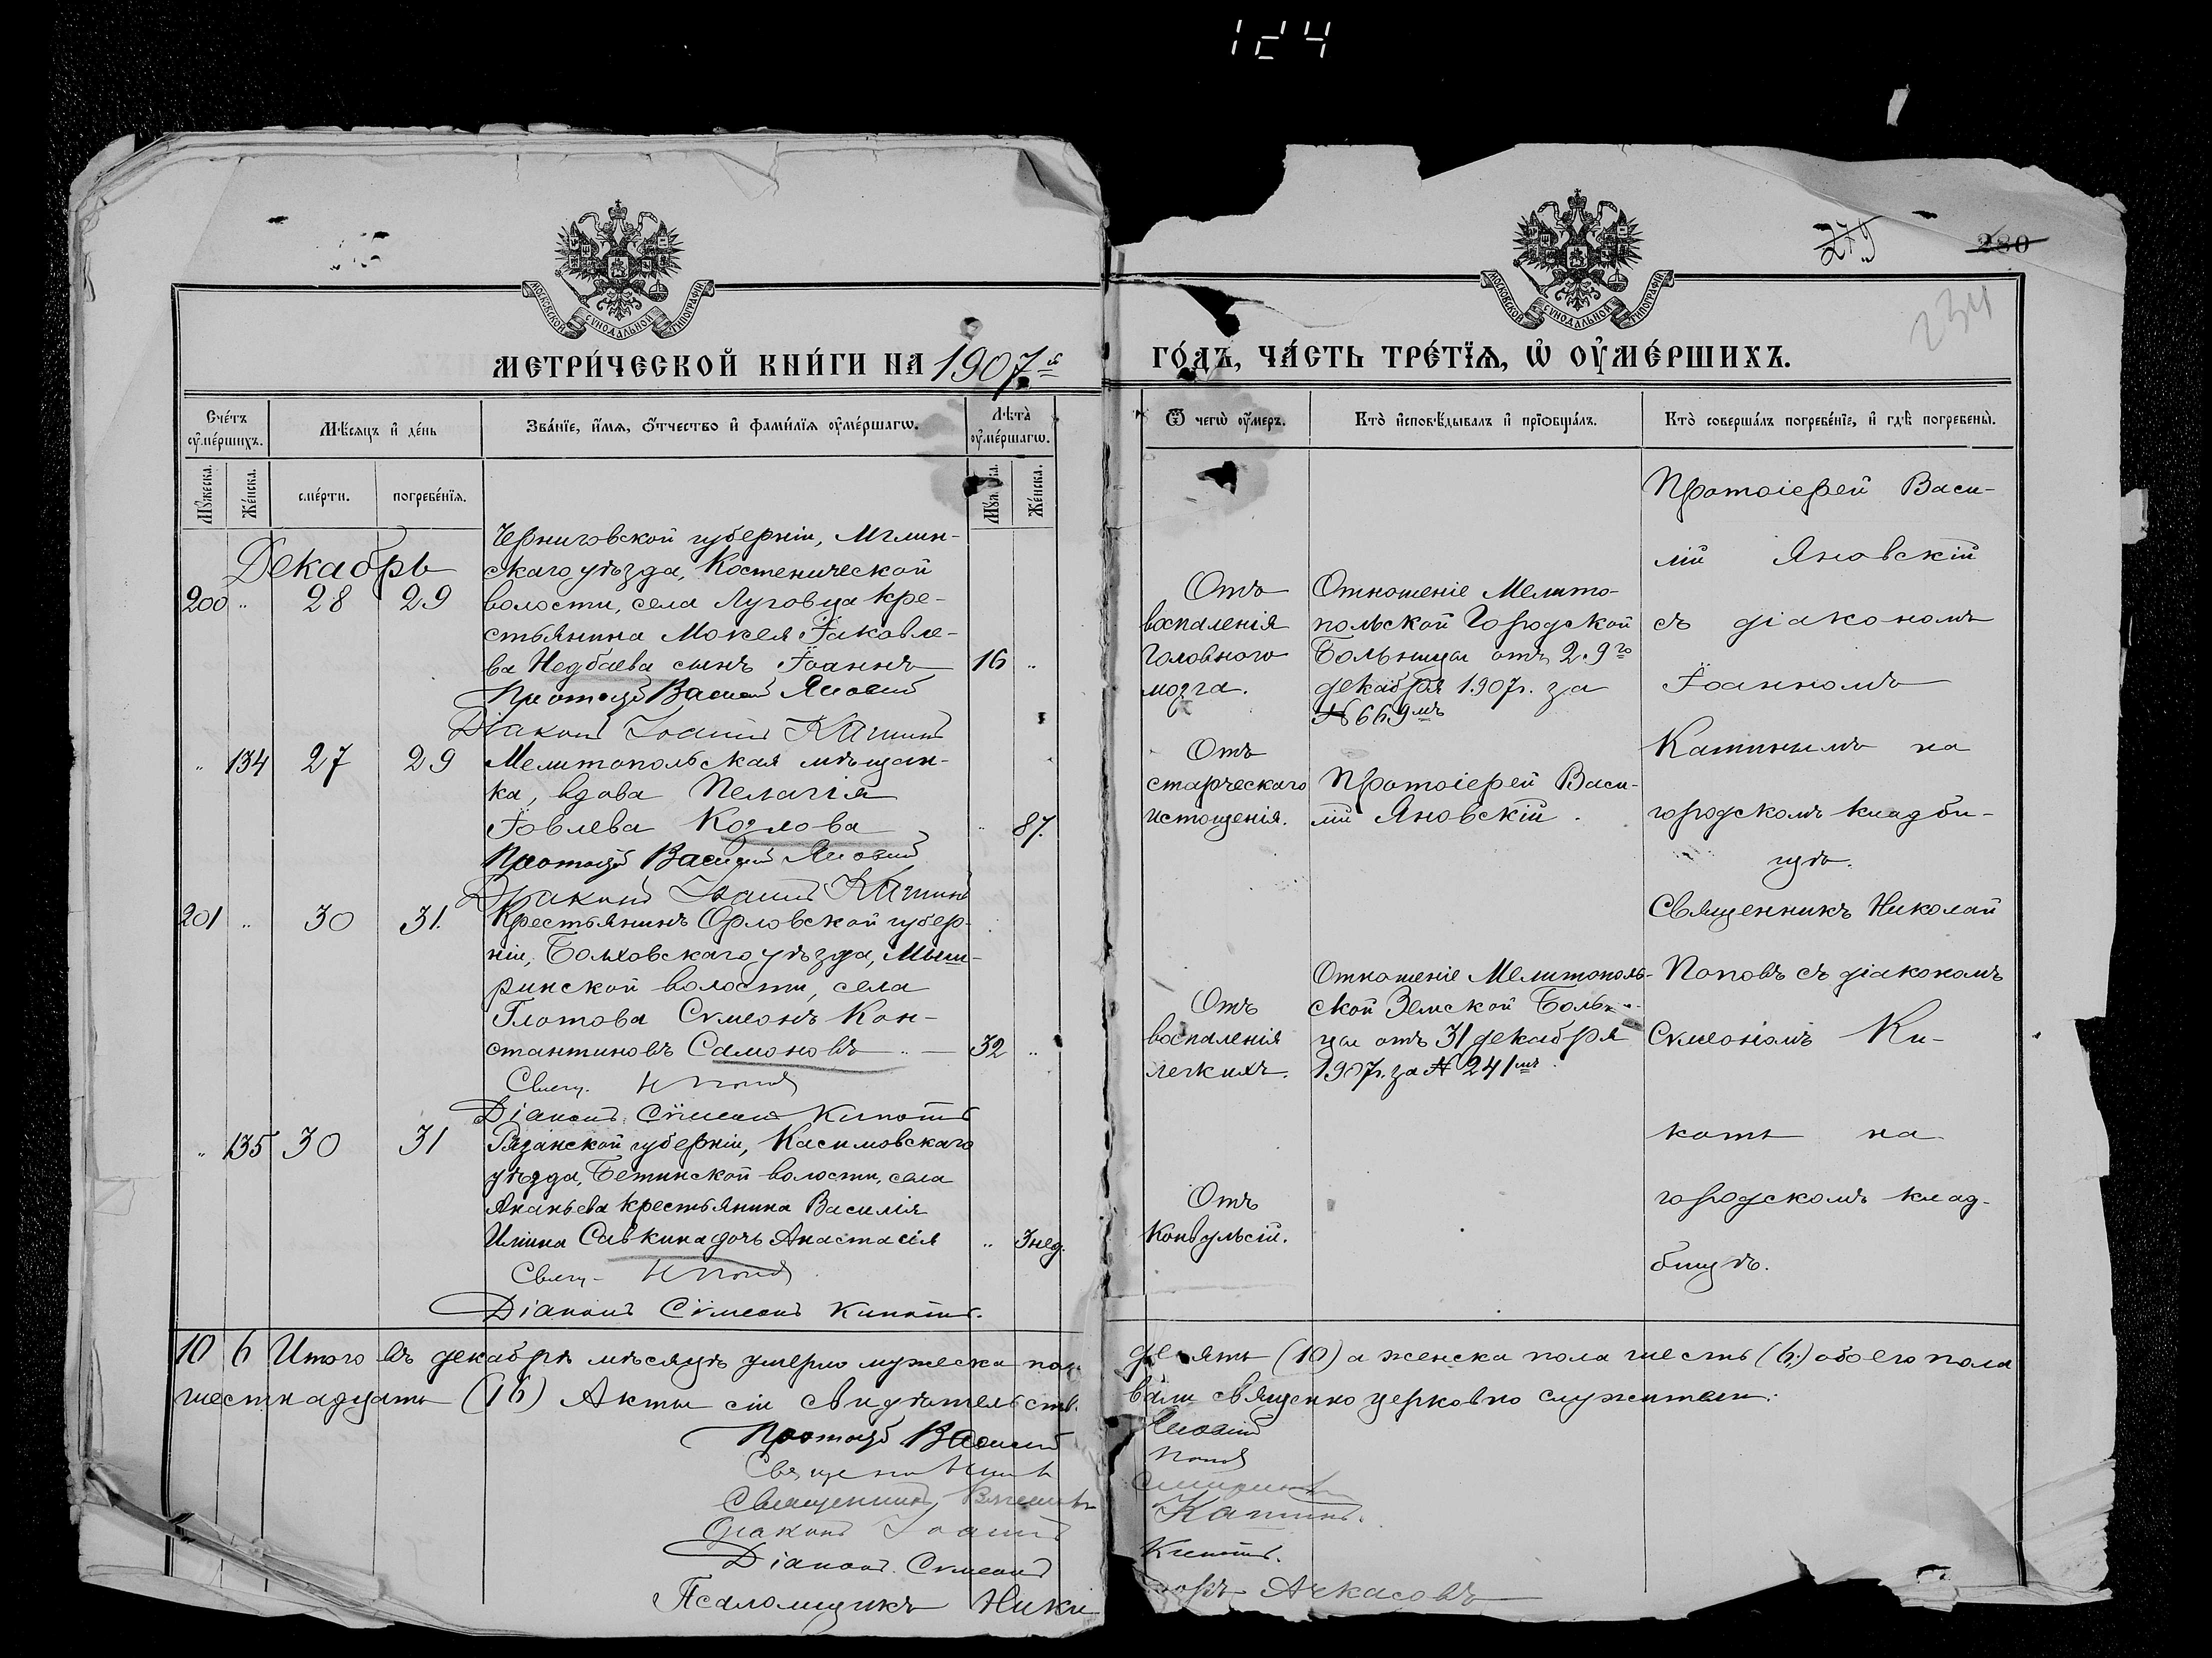 124
279
280
234
МОСКОВСКОЙ СѴНОДАЛЬНОЙ ТИПОГРАФІИ
МОСКОВСКОЙ СѴНОДАЛЬНОЙ ТИПОГРАФІИ
МЕТРИ́ЧЕСКОЙ КНИ́ГИ НА 1907й
ГО́ДЪ, ЧА́СТЬ ТРЕ́ТЇѦ, Ѡ҆ ОУ҆МЕ́РШИХЪ.
Сче́тъ оу҆ме́ршихъ.
Мѣ́сяцъ и҆ де́нь
Зва́нїе, и҆́мѧ, ѻ҆́тчество и҆ фами́лїѧ оу҆ме́ршагѡ.
Лѣ́та оу҆ме́ршагѡ.
Ѿ чегѡ̀ оу҆́меръ.
Кто̀ и҆сповѣ́дывалъ и҆ прїѡбща́лъ.
Кто̀ соверша́лъ погребе́нїе, и҆ гдѣ̀ погребены̀.
Мꙋ́жеска.
Же́нска.
сме́рти.
погребе́нїѧ.
Же́нска.
Декабрь
200 " 28 29
Черниговской губерніи, Мглин-
скаго уѣзда, Костенической
волости, села Луговца кре-
стьянина Мокея Іаковле-
ва Недбаева сынъ Іоаннъ 16 "
Протоіер Василій Яновскій
Діаконъ Іоаннъ Катинъ
Отъ
воспаленія
головного
мозга.
Отношеніе Мелито-
польской Городской
Больницы отъ 29го
декабря 1907г. за
№669мъ
Протоіерей Васи-
лій Яновскій
съ діакономъ
Іоанномъ
Катинымъ на
городскомъ кладби-
щѣ.
" 134 27 29
Мелитопольская мѣщан-
ка, вдова Пелагія
Іовлева Козлова " 87.
Протоіер Василій Яновскій
Діаконъ Іоаннъ Катинъ
Отъ
старческаго
истощенія.
Протоіерей Васи-
лій Яновскій.
201 " 30 31.
Крестьянинъ Орловской губер-
ніи, Болховскаго уѣзда, Мыш-
ринской волости, села
Глотова Сѵмеонъ Кон-
стантиновъ Самоновъ " 32 "
Свящ. Н Поповъ
Діаконъ Сѵмеонъ Кипоть
Отъ
воспаленія
легкихъ.
Отношеніе Мелитополь-
ской Земской Больн-
цы отъ 31 декабря
1907г. за № 241мъ
Священникъ Николай
Поповъ съ діакономъ
Сѵмеономъ Ки-
поть на
городскомъ клад-
бищѣ.
" 135 30 31
Рязанской губерніи, Касимовскаго
уѣзда, Бетинской волости, села
Ананьева крестьянина Василія
Ильина Савкина дочь Анастасія " 3 нед.
Свящ. Н Поповъ
Діаконъ Сѵмеонъ Кипоть.
Отъ
конвульсій.
10 6 Итого въ декабрѣ мѣсяцѣ умерло мужеска пол
десять (10) а женска пола шесть (6,) обоего пола
шестнадцать (16) Акты сіи свидѣтельств.
вали священно церковно служители:
Протоіер Василій Яновскій
Священникъ Поповъ
Священникъ Смирновъ
Діаконъ Іоаннъ Катинъ.
Діаконъ Сѵмеонъ Кипоть.
Псаломщикъ Ники
форъ Ачкасовъ